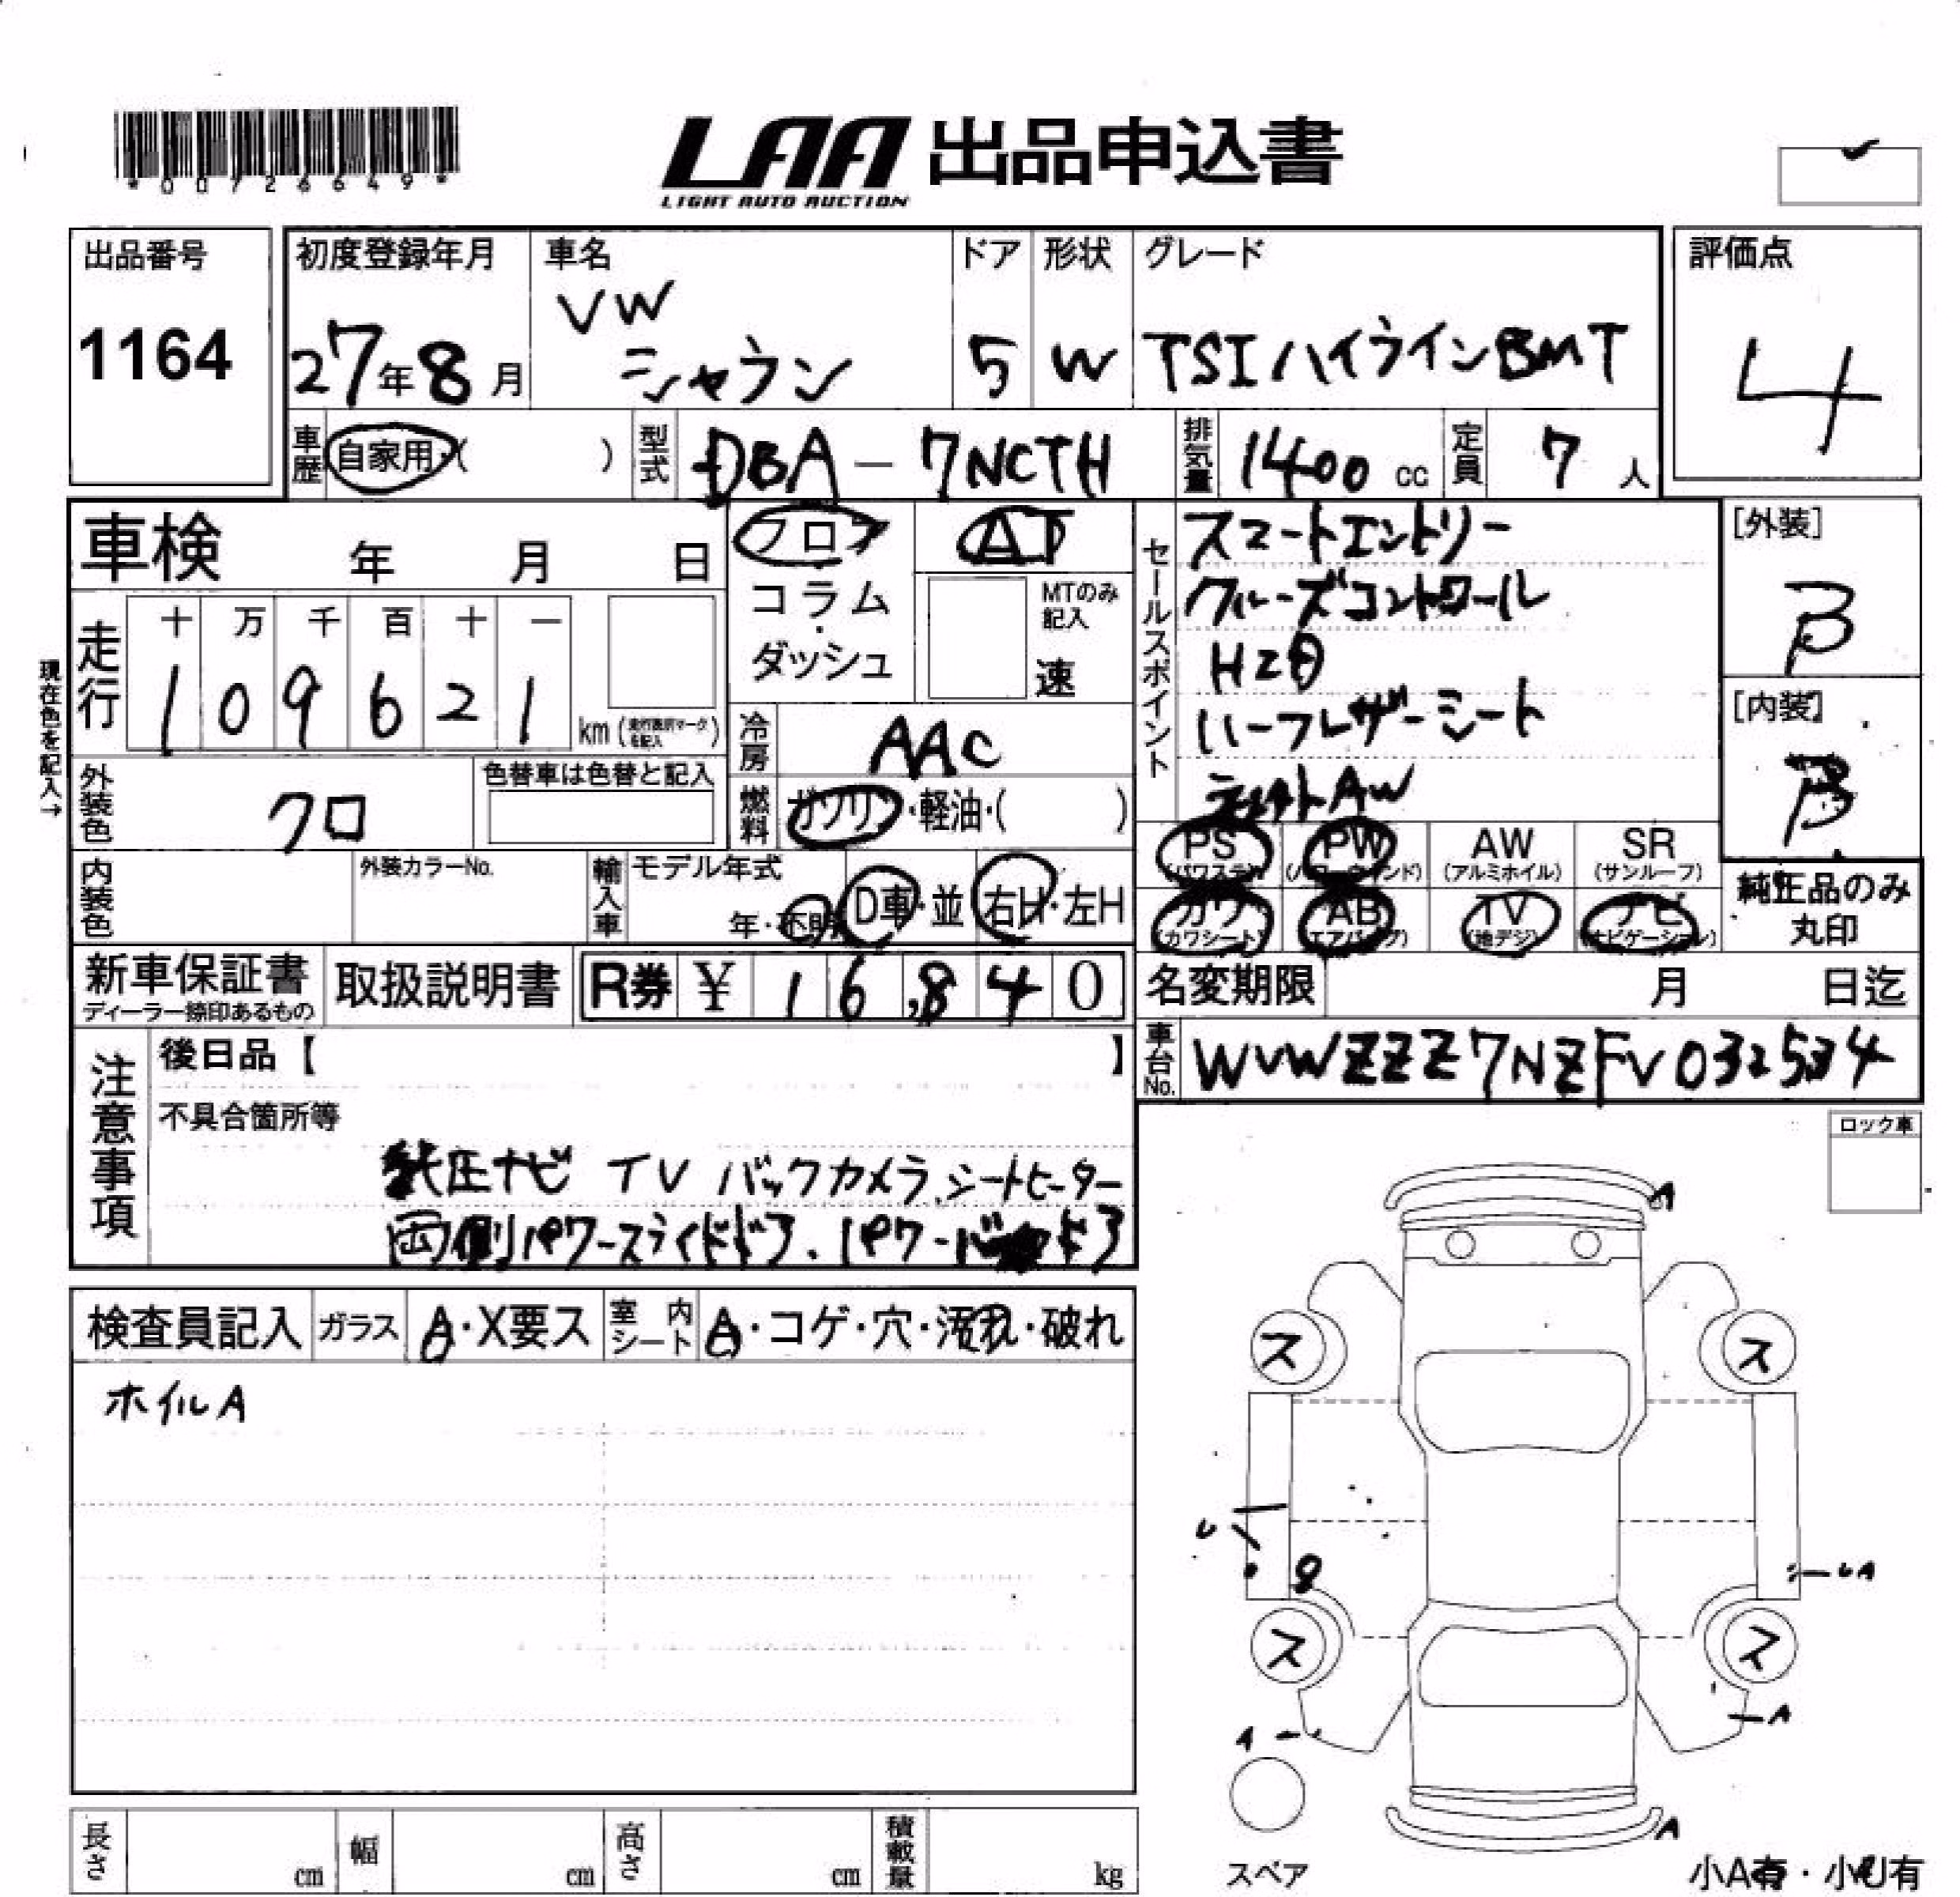 *00726649*
LAA 出品申込書
LIGHT AUTO AUCTION
出品番号
1164
初度登録年月
27年8月
車名
VW
シャラン
ドア
5
形状
W
グレード
TSIハイラインBMT
評価点
4
車歴
自家用・( )
型式
DBA-7NCTH
排気量
1400 cc
定員
7 人
車検 年 月 日
フロア
コラム
・
ダッシュ
AT
MTのみ
記入
速
現在色を記入→
走行
十 万 千 百 十 一
1 0 9 6 2 1
km
冷房
AAC
外装色
クロ
色替車は色替と記入
燃料
ガソリン・軽油・( )
セールスポイント
スマートエントリー
クルーズコントロール
HID
ハーフレザーシート
[外装]
B
[内装]
B
PS
(パワステ)
PW
(パワーウインド)
AW
(アルミホイル)
SR
(サンルーフ)
カワ
(カワシート)
AB
(エアバッグ)
TV
(地デジ)
ナビ
(ナビゲーション)
純正品のみ
丸印
内装色
外装カラーNo.
輸入車
モデル年式
年・不明
D車・並
右H・左H
新車保証書
ディーラー捺印あるもの
取扱説明書
R券 ¥ 16,840
名変期限 月 日迄
車台No.
WVWZZZ7NZFV032534
注意事項
後日品【 】
不具合箇所等
純正ナビ TV バックカメラ、シートヒーター
両側パワースライドドア、パワーバックドア
ロック車
検査員記入
ガラス
A・X要ス
室内
シート
A・コゲ・穴・汚れ・破れ
ホイルA
A
ス ス
U
8
UA
ス ス
A
A
A
スペア
小A有・小U有
長さ cm
幅 cm
高さ cm
積載量 kg